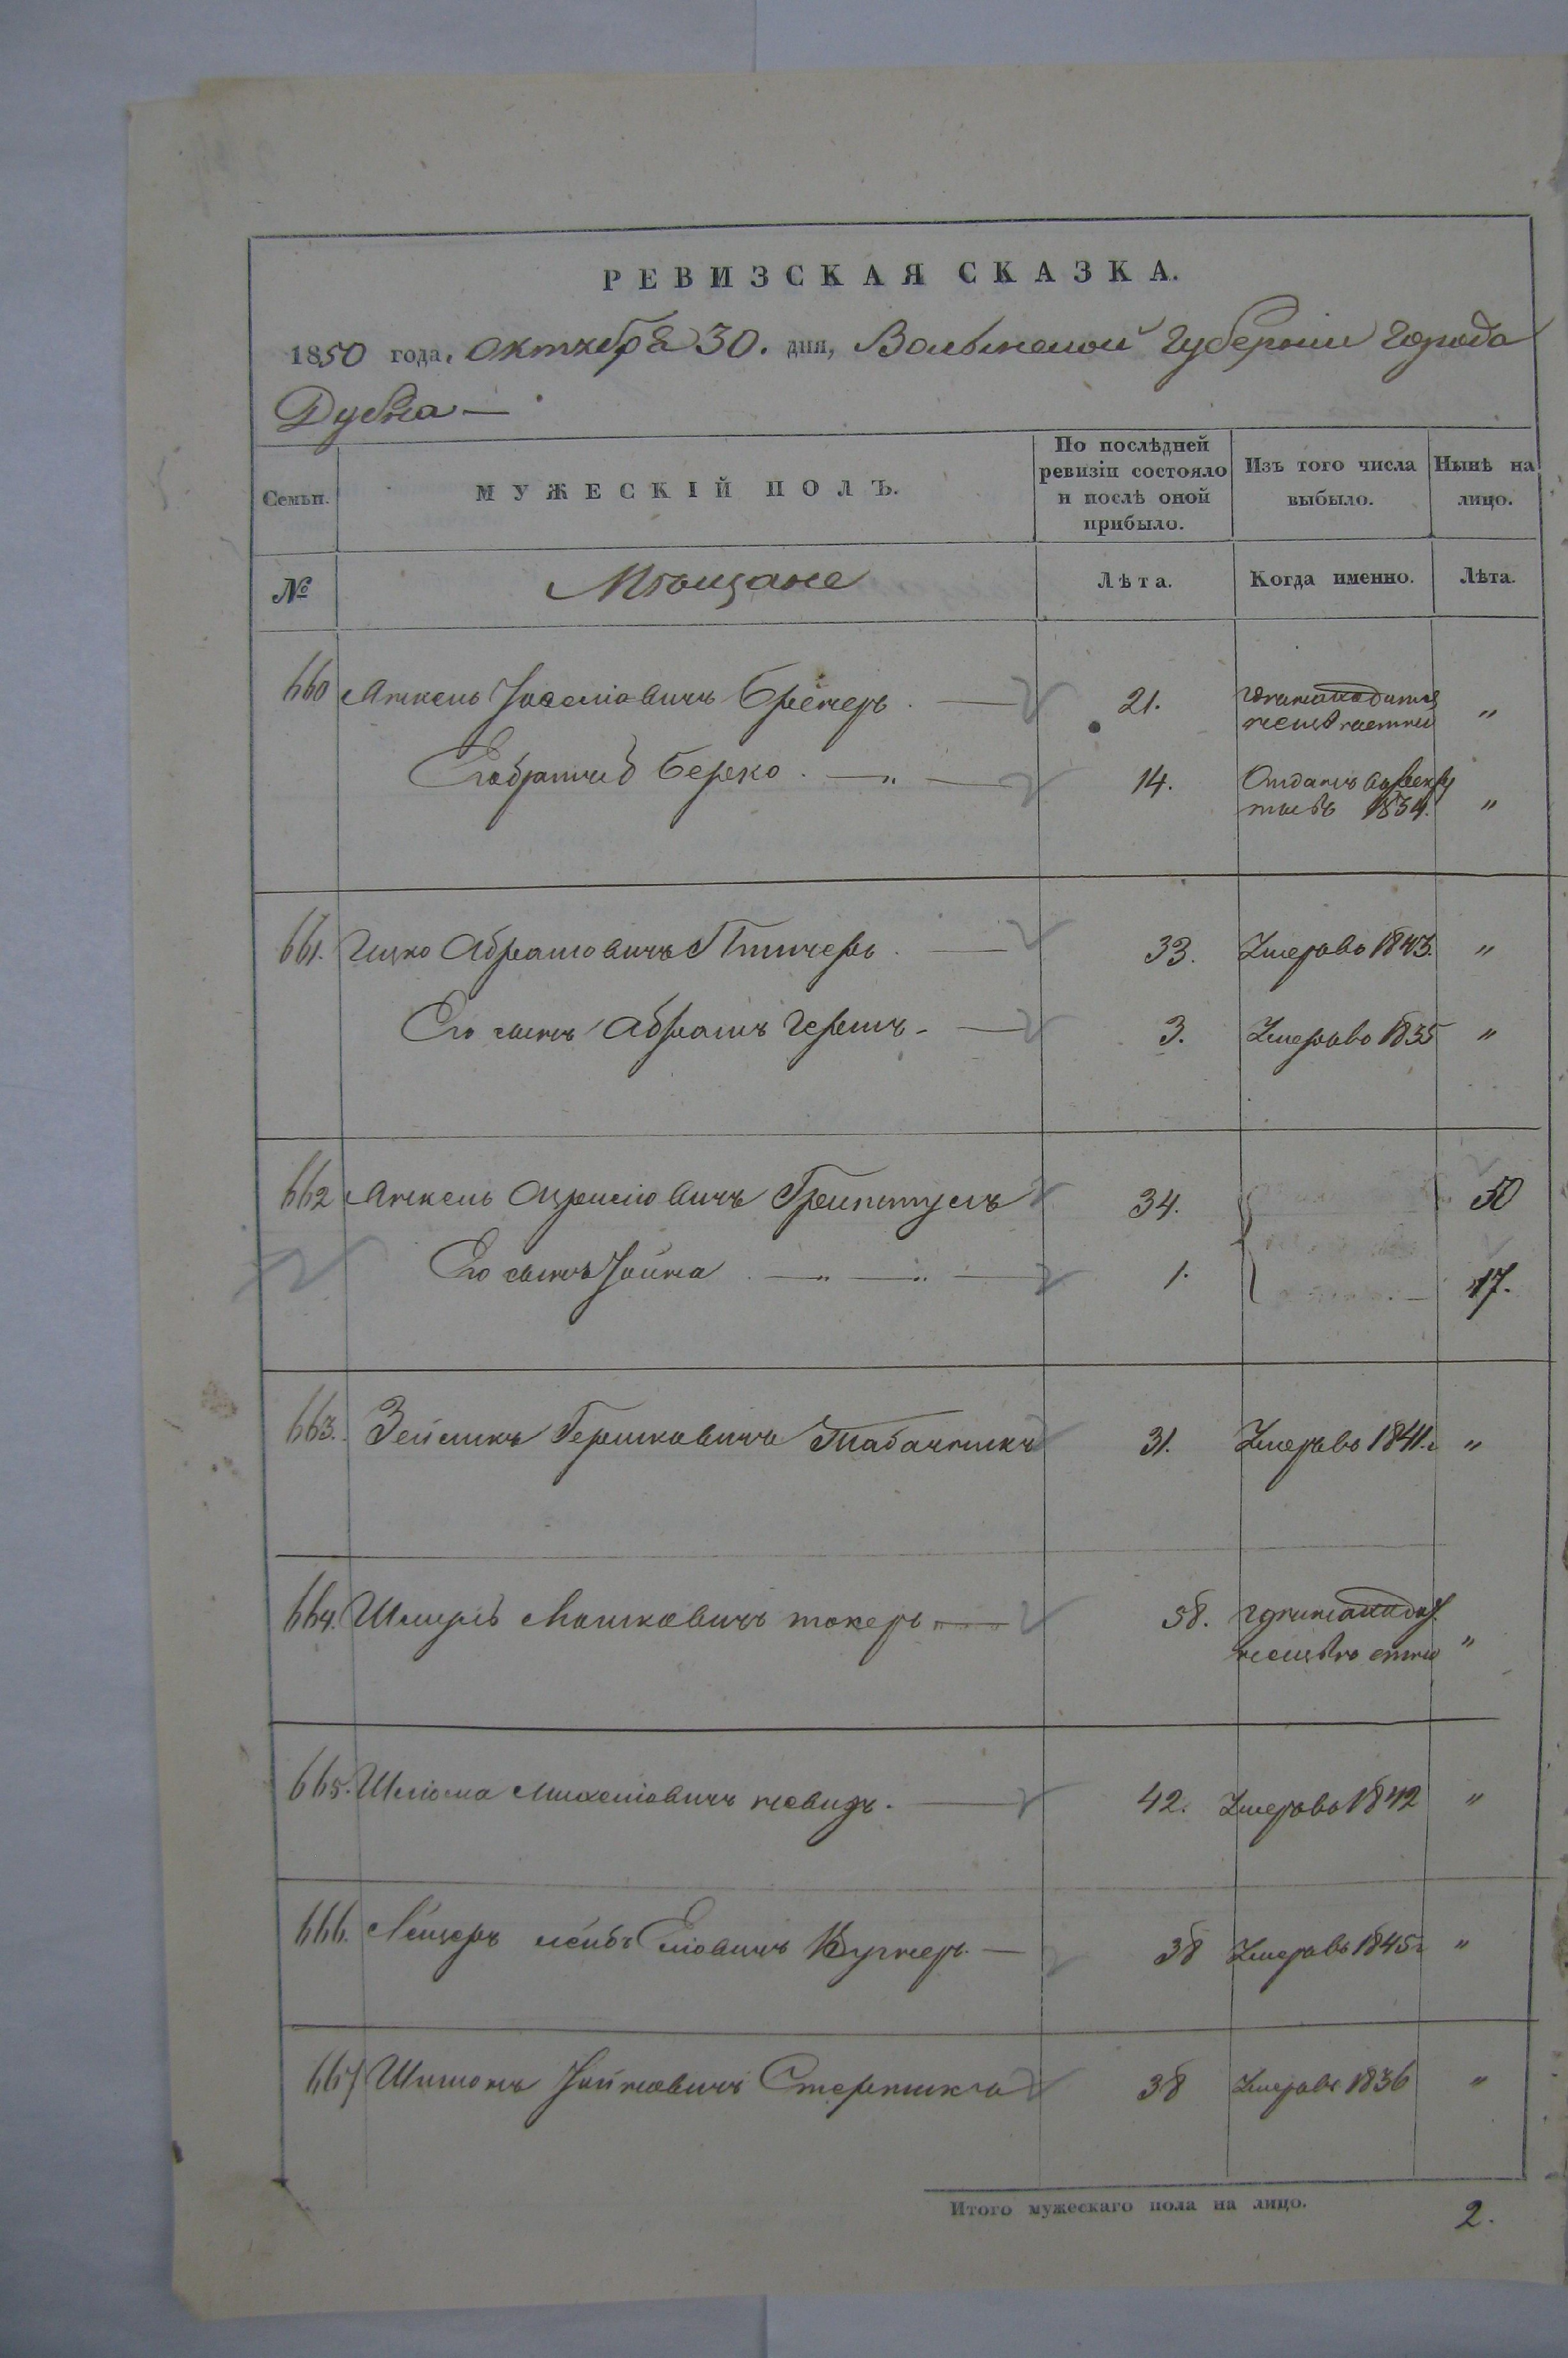 РЕВИЗСКАЯ СКАЗКА.
1850 года, октября 30. дня, Волынской Губернии города
Дубна —
Семьи. МУЖЕСКІЙ ПОЛЪ. По послѣдней ревизіи состояло и послѣ оной прибыло. Изъ того числа выбыло. Нынѣ на лицо.
№ Мѣщане Лѣта. Когда именно. Лѣта.
660 Анкель Іоселіовичъ 21. "
Его братъ Берко 14. Отданъ въ рекру
ты въ 1834. "
661. Ицко Абрамовичъ 33. Умеръ въ 1843. "
Его сынъ Абрамъ Гершъ 3. Умеръ въ 1835 "
662 Анкель 34. 50
Его сынъ Іойна 1. 17.
663. Зейликъ Гершковичъ Табачникъ 31. Умеръ въ 1841 г "
664. Шмуль Мошковичъ токеръ 58.
неизвѣстно "
665. Шлiома 42. Умеръ въ 1842 "
666. Лейзеръ лейбъ Еліовичъ 38 Умеръ въ 1845 г "
667 Шимонъ Хаймовичъ 38 Умеръ въ 1836 "
Итого мужескаго пола на лицо. 2.